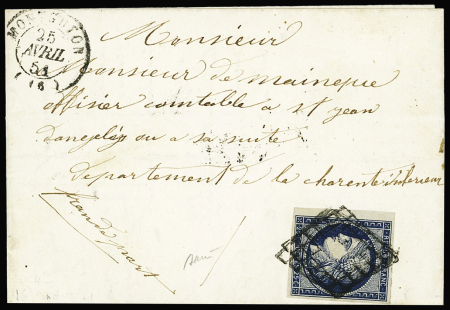 MONTENDION
25
AVRIL
51
(16)
Monsieur
Monsieur de maineque
offisier comtable a st jean
dangelÿs ou a sa suite
departement de la charente inferieur
fran de port
FRANC